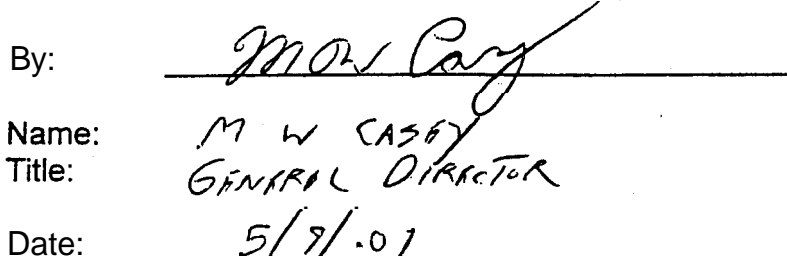 By: MW Casey
Name: M W CASEY
Title: GENERAL DIRECTOR
Date: 5/9/.01